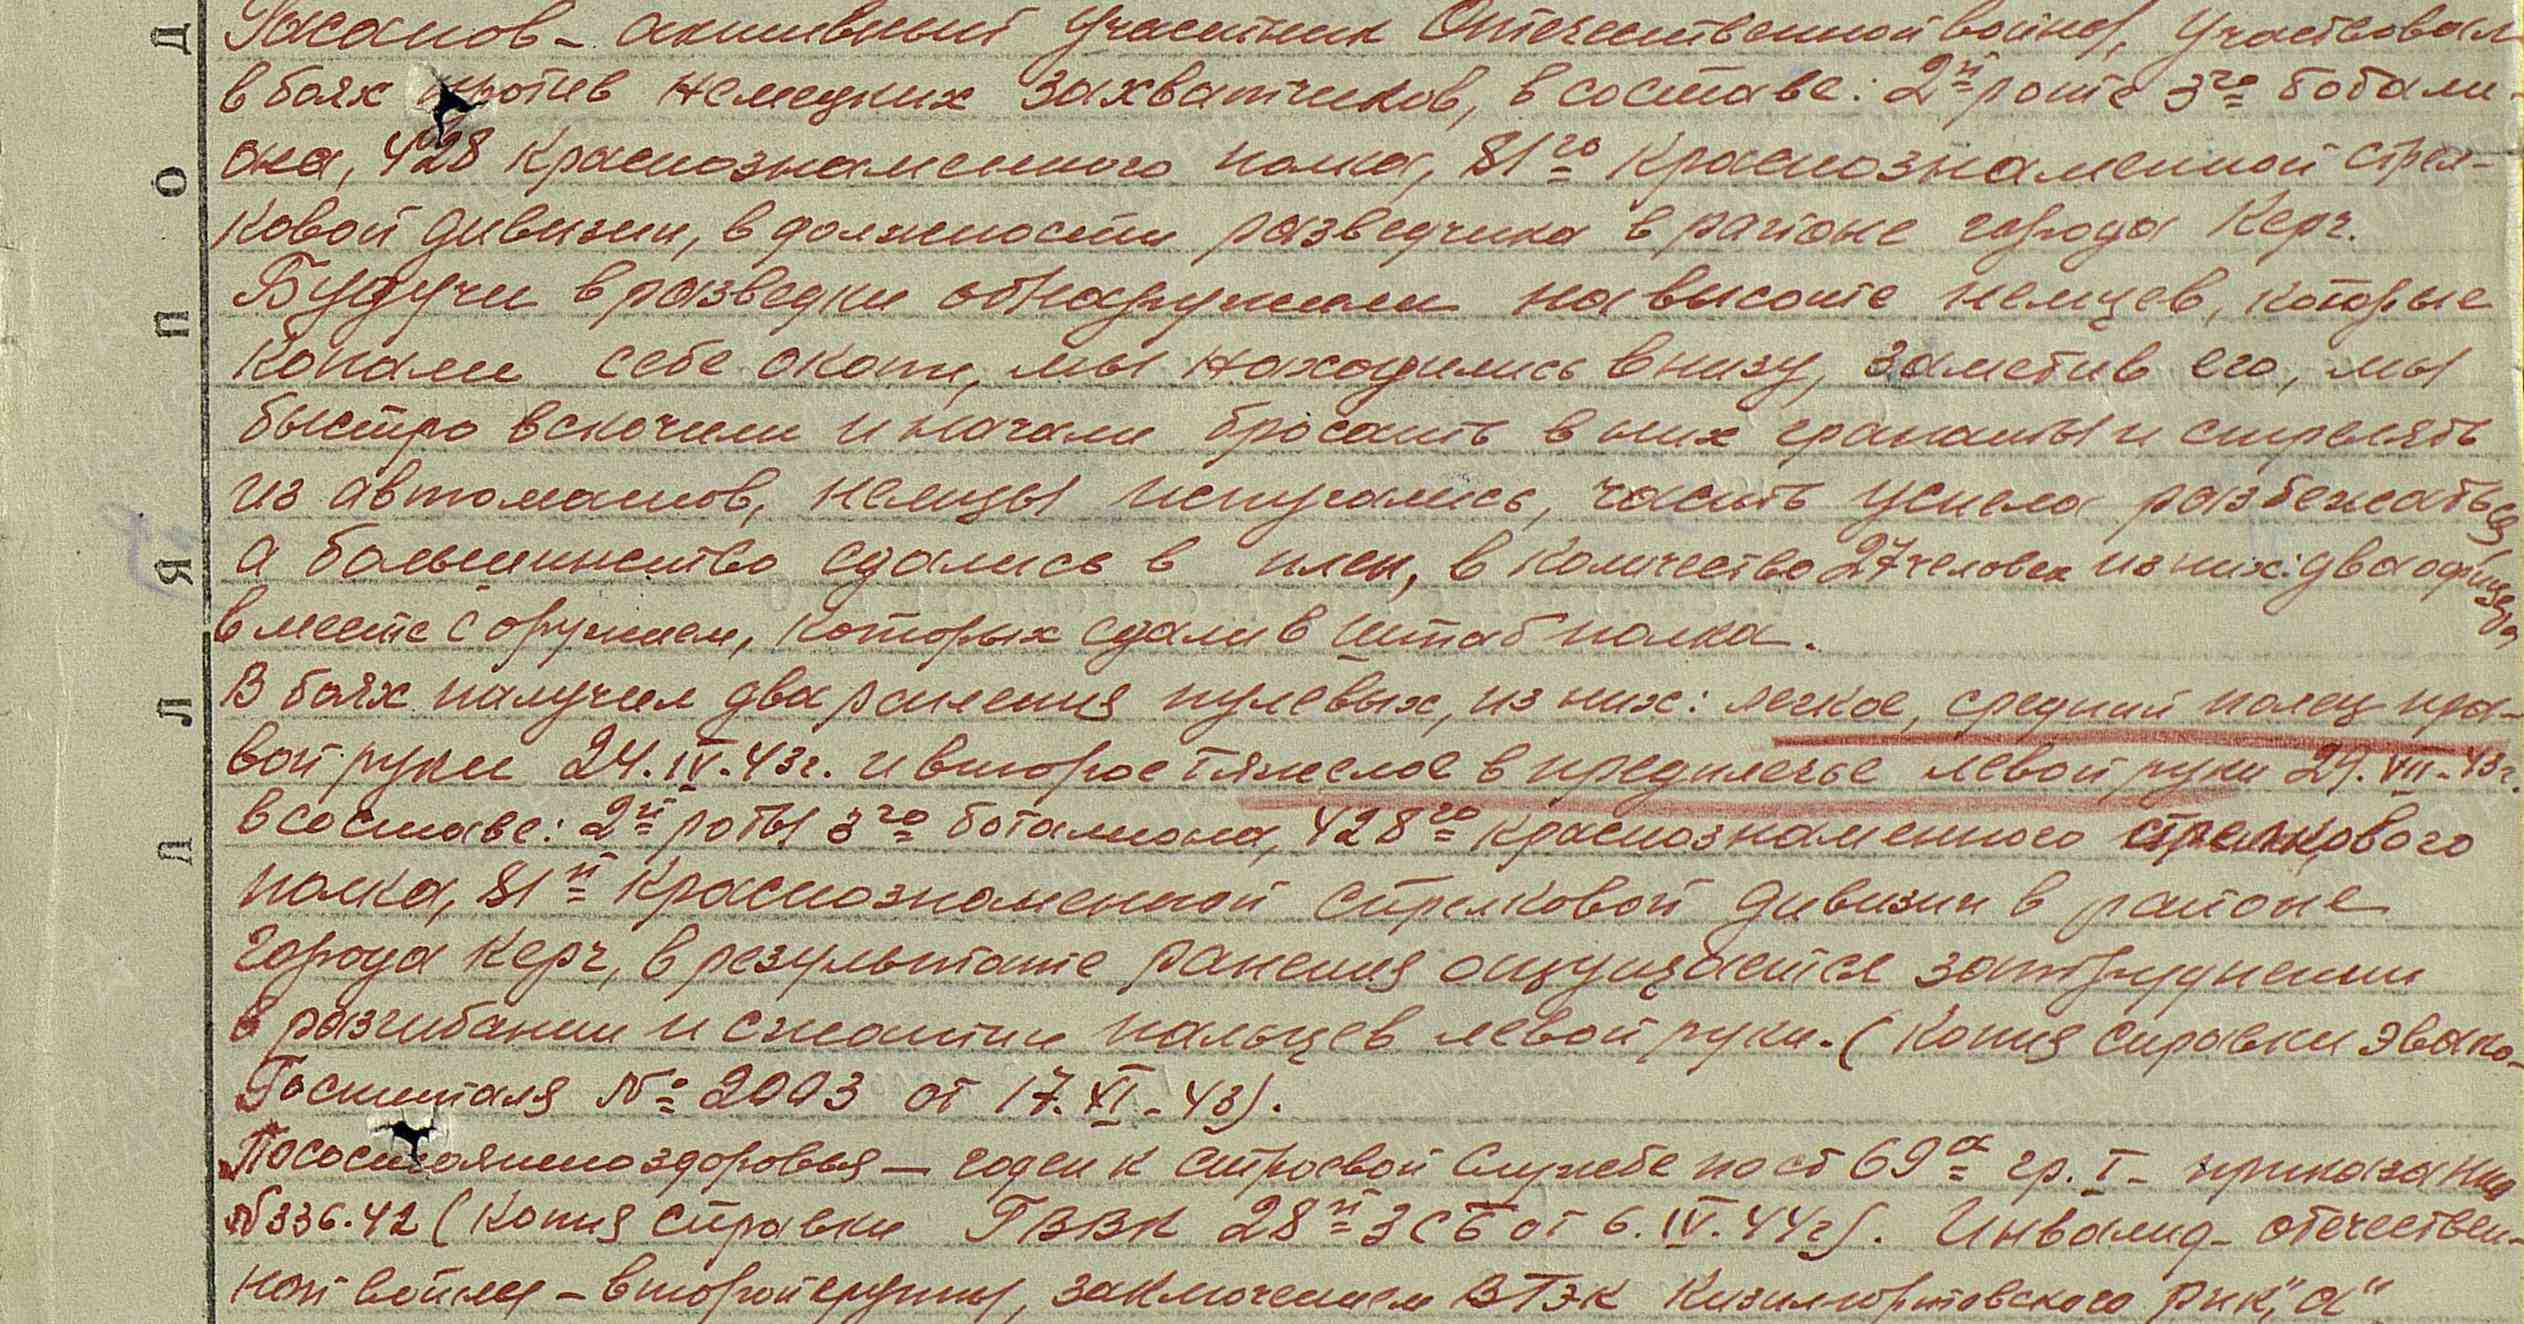 Гасанов - активный участник Отечественной войны, участвовал
в боях против немецких захватчиков, в составе: 2й роте 3гоботали-
она, 428 Краснознаменного полка, 81го Краснознаменной стрел-
ковой дивизии, в должности разведчика в районе города Керч.
Будучи в разведки обнаружили на высоте немцев, которые
копали себе окопы, мы находились внизу, заметив его, мы
быстро вскочили и начали бросать в них гранаты и стрелять
из автоматов, немцы испугались, часть успела разбежаться
а большинство сдались в плен, в количество 27 человек из них: два офицера
вместе с оружием, которых сдали в штаб полка.
В боях получил два ранения пулевых, из них: легкое, средний палец пра-
вой руки 24.IV.43г. и второе тяжелое в предплечье левой руки 29.VII-43г.
в составе: 2й роты 3го баталиона, 428го Краснознаменного стрелкового
полка, 81й Краснознаменной стрелковой дивизии в районе
города Керч, в результате ранения ощущается затруднении
в разгибании и сжатии пальцев левой руки. (Копия справки эвако-
Госпиталя № 2003 от 17.XI-43).
По состоянию здоровья - годен к строевой службе по ст 69а гр. I - приказания
№336.42 (Копия справки ГВВК 28й ЗСБ от 6.IV.44г). Инвалид - отечествен-
ной войны - второй группы, заключением ВТЭК Кизилюртовского рик, "а"
Д
О
П
Я
Л
Л